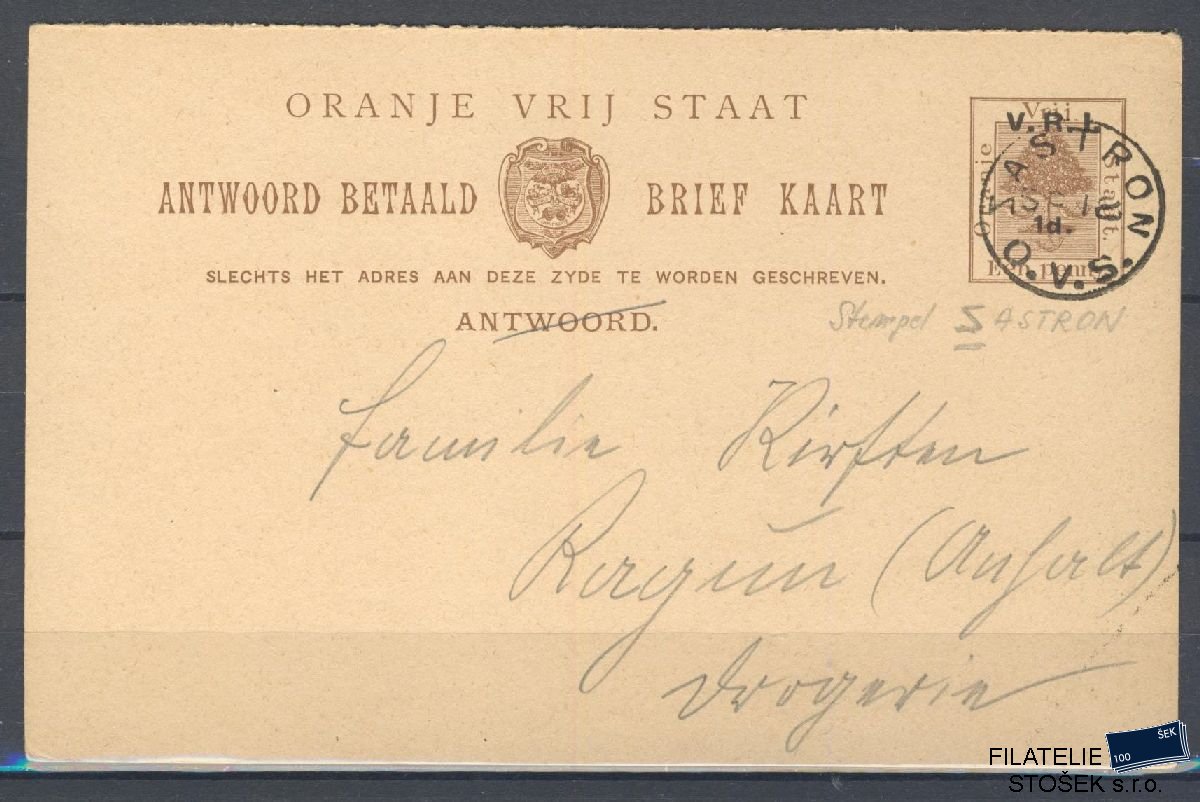 ORANJE VRIJ STAAT
ANTWOORD BETAALD BRIEF KAART
SLECHTS HET ADRES AAN DEZE ZYDE TE WORDEN GESCHREVEN.
ANTWOORD.
Oranje Vrij Staat.
Een penny
V.R.I.
1d.
ASTRON
O.V.S.
Stempel S ASTRON
Familie Kirsten
Ragun (Anhalt)
Drogerie
FILATELIE
STOŠEK s.r.o.
100 ŠEK